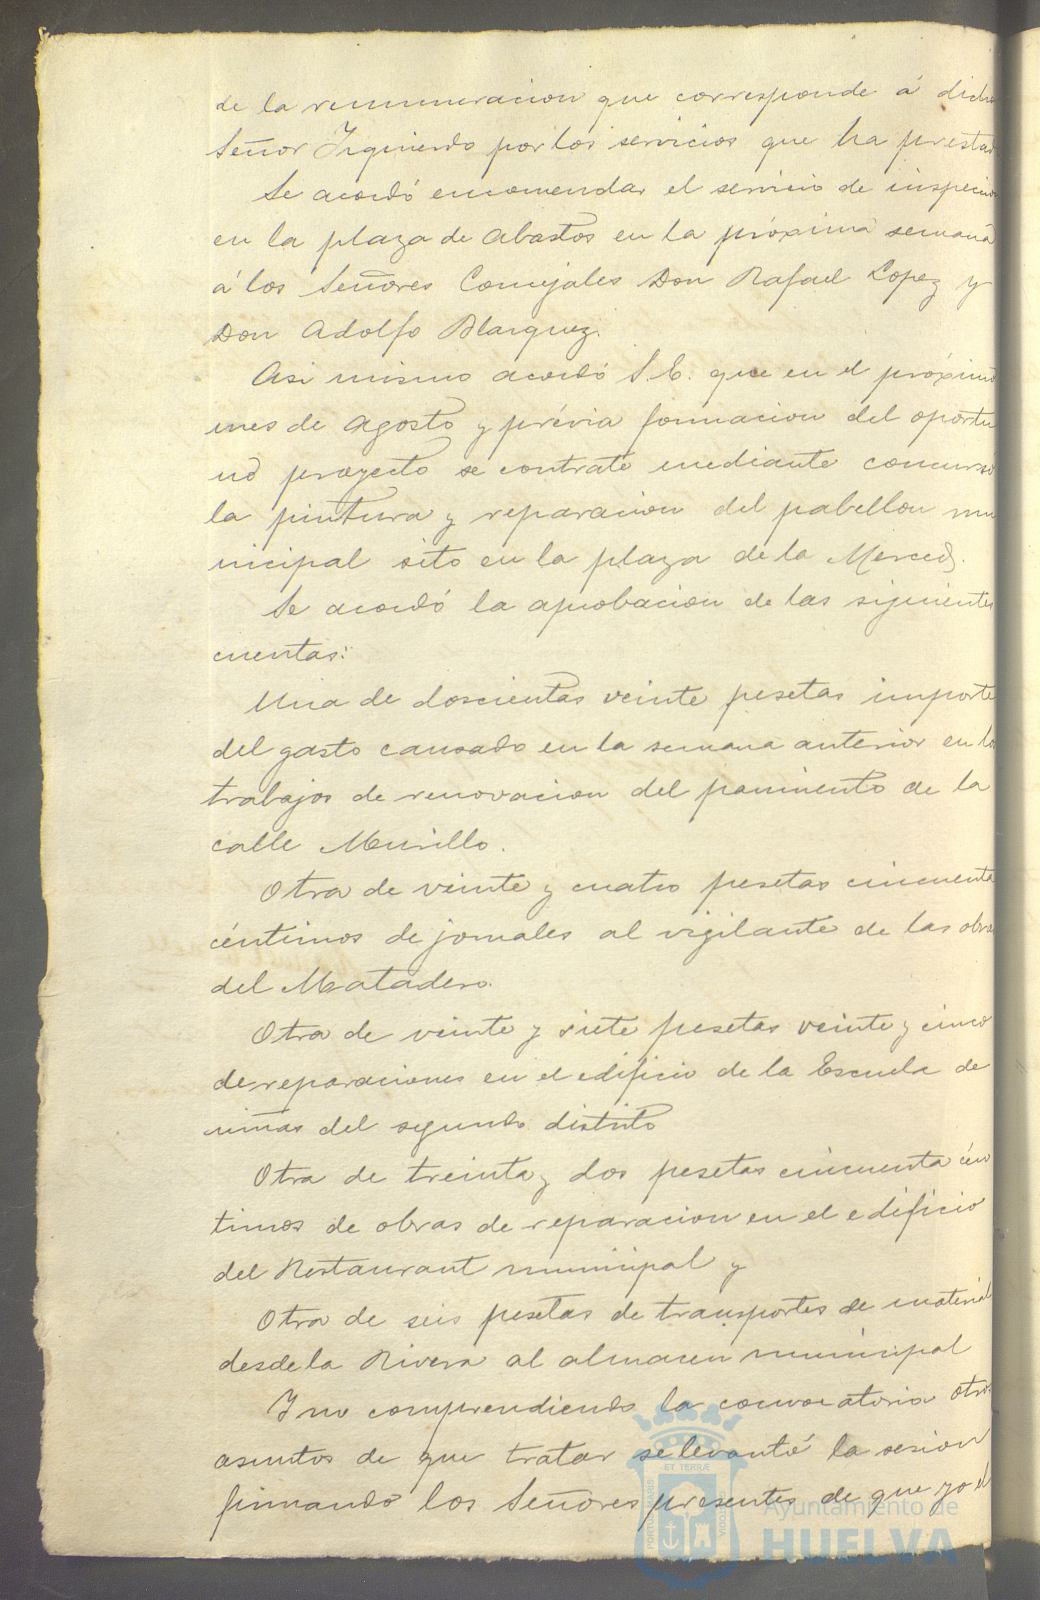 de la remuneracion que corresponde á dicho
Señor Izquierdo por los servicios que ha prestad
Se acordó encomendar el servicio de inspeccion
en la plaza de Abastos en la próxima semana
á los Señores Concejales Don Rafael Lopez y
Don Adolfo Blazquez.
Asi mismo acordó S.E. que en el próximo
mes de Agosto y prévia formacion del oportu
no proyecto se contrate mediante concurso
la pintura y reparacion del pabellon mu
nicipal sito en la plaza de la Merced.
Se acordó la aprobacion de las siguientes
cuentas:
Una de doscientas veinte pesetas importe
del gasto causado en la semana anterior en los
trabajos de renovacion del pavimento de la
calle Murillo.
Otra de veinte y cuatro pesetas cincuenta
céntimos de jornales al vigilante de las obras
del Matadero.
Otra de veinte y siete pesetas veinte y cinco
de reparaciones en el edificio de la Escuela de
niñas del segundo distrito
Otra de treinta y dos pesetas cincuenta cén
timos de obras de reparacion en el edificio
del Restaurant municipal y
Otra de seis pesetas de transportes de material
desde la Rivera al almacen municipal
Y no comprendiendo la convocatoria otros
asuntos de que tratar se levantó la sesion
firmando los Señores presentes de que yo el
PORTUS MARIS ET TERRÆ CUSTODIA
Ayuntamiento de
HUELVA